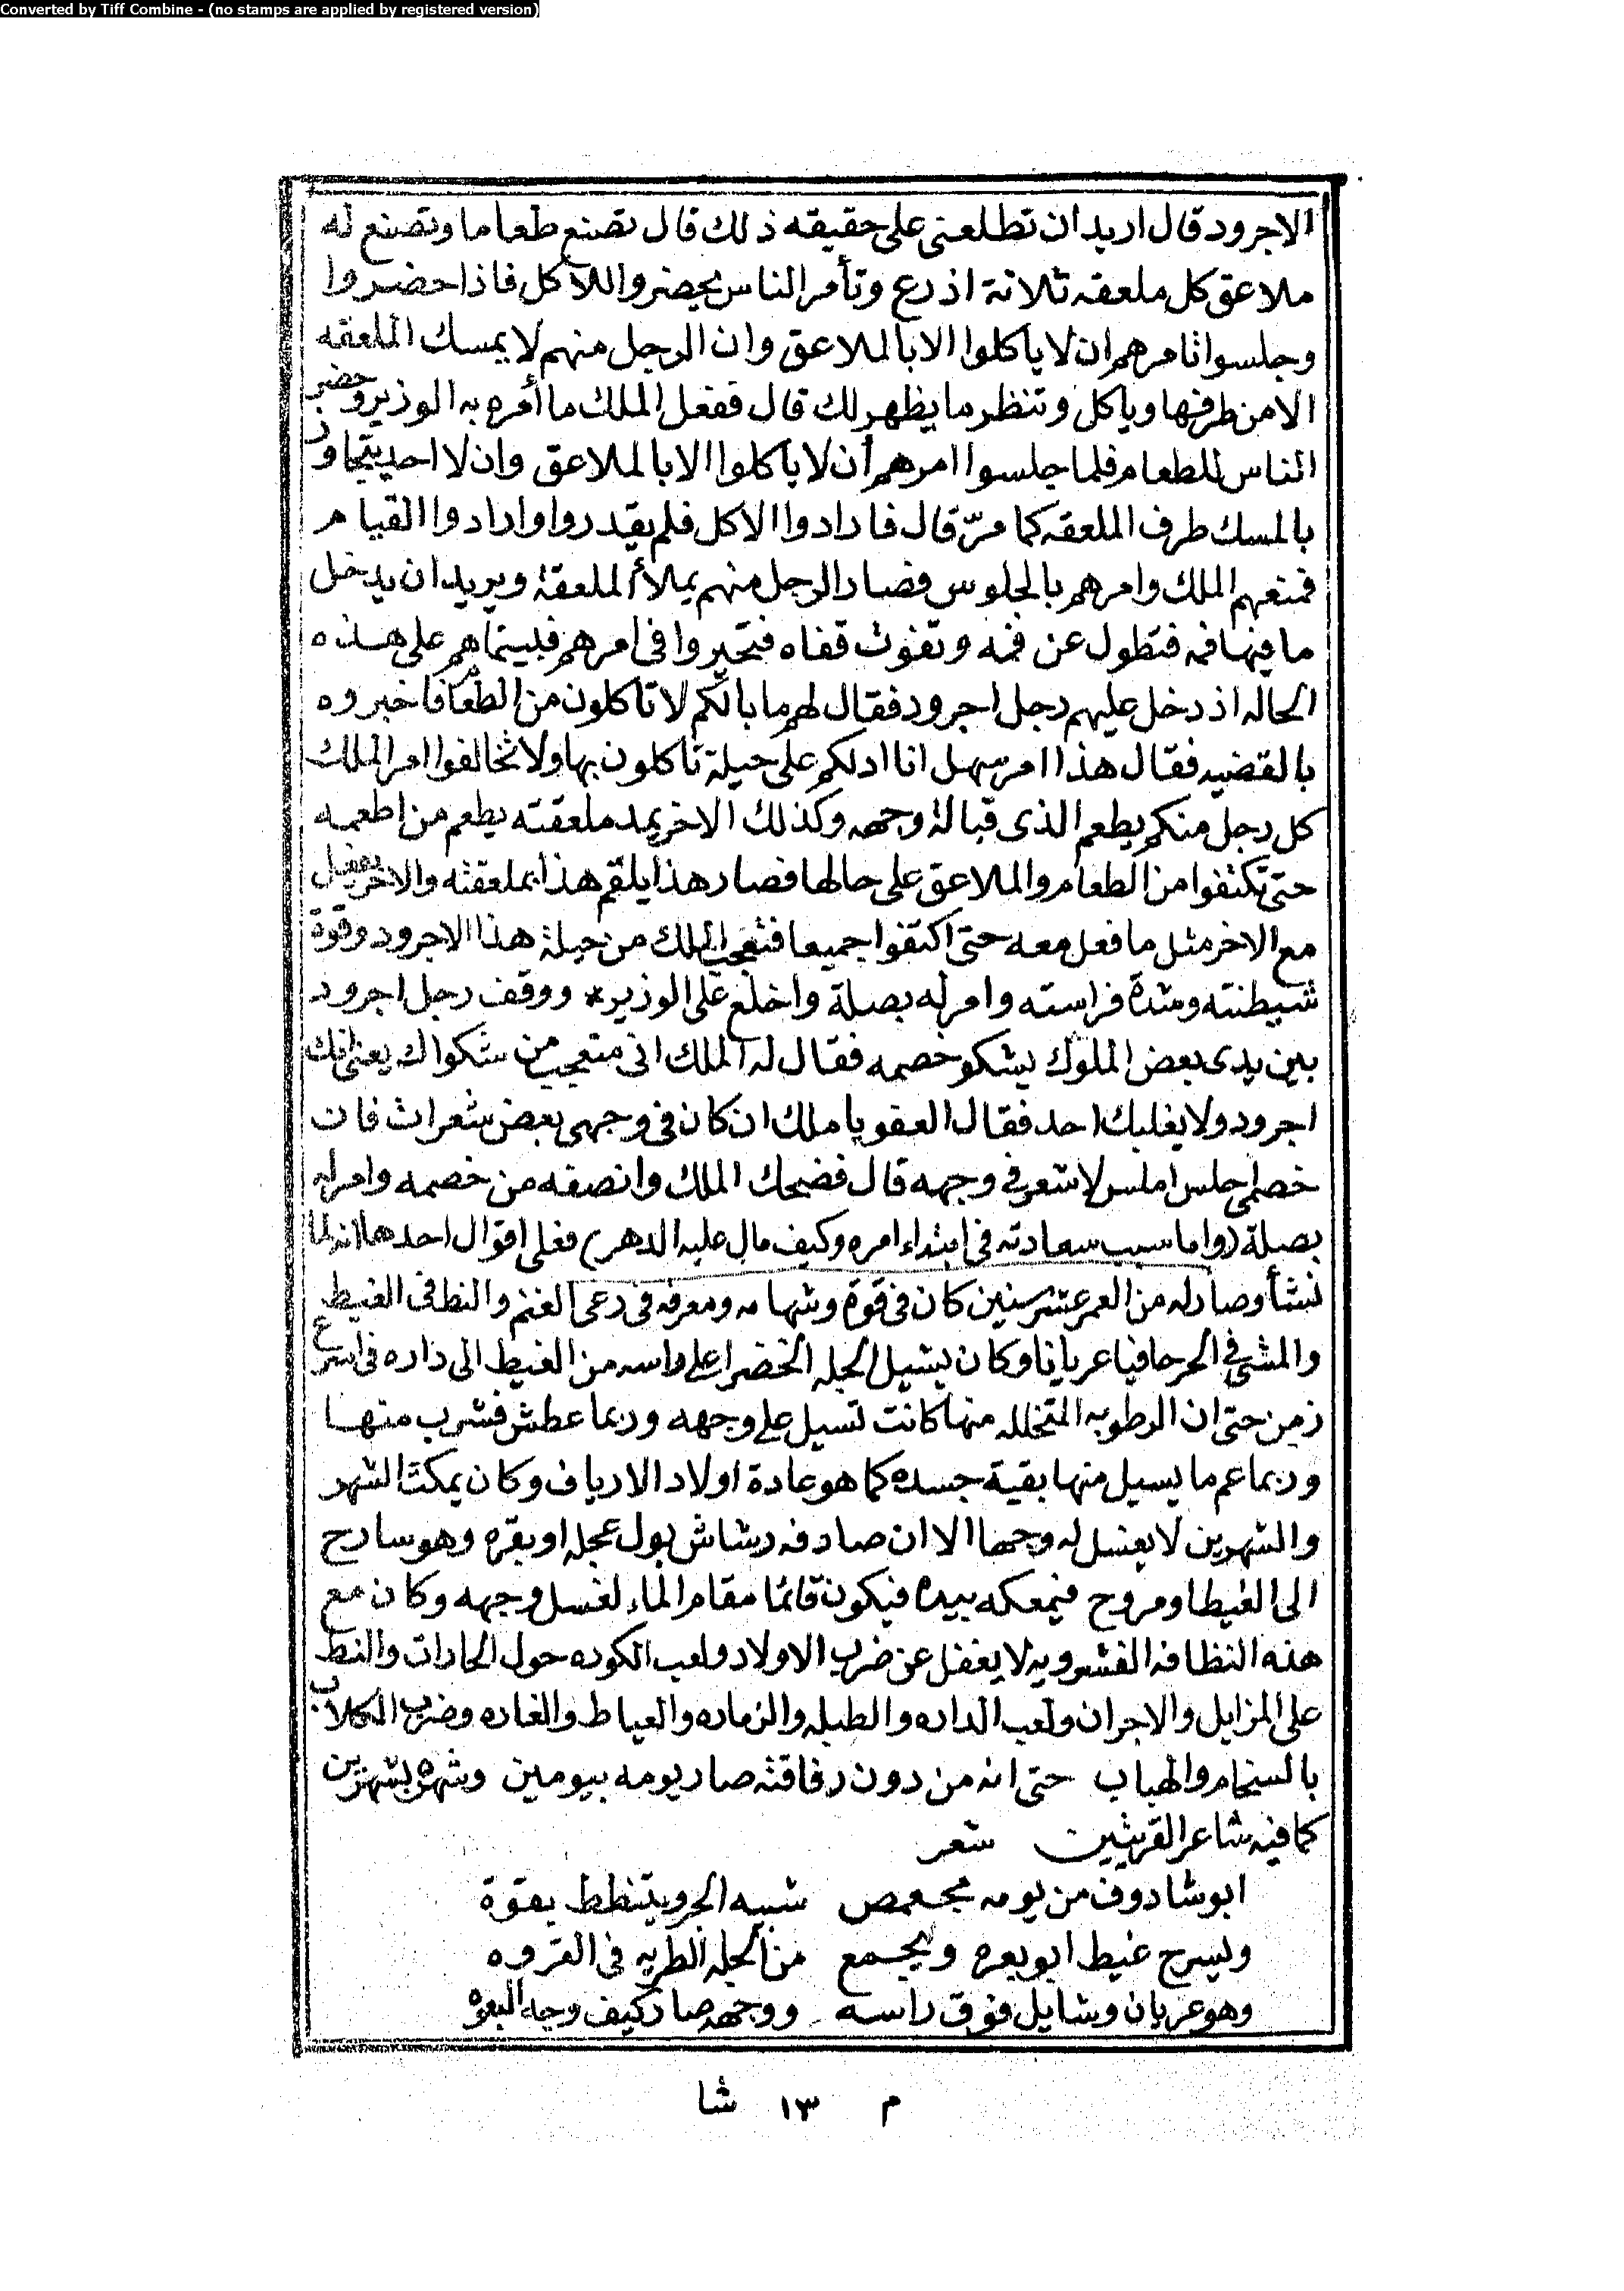 Converted by Tiff Combine - (no stamps are applied by registered version)
الاجرود قال اريد ان تطلعنى على حقيقه ذلك قال تصنع طعاما وتصنع له
ملاعق كل ملعقه ثلاثة اذرع وتأمر الناس يحضروا للاكل فاذا حضروا
وجلسوا تامرهم ان لا ياكلوا الا بالملاعق وان الرجل منهم لا يمسك الملعقه
الا من طرفها وياكل وتنظر ما يظهر لك قال ففعل الملك ما أمره به الوزير وحضر
الناس للطعام فلما جلسوا امرهم أن لا ياكلوا الا بالملاعق وان لا احد يتجاوز
بالمسك طرف الملعقه كما مرّ قال فارادوا الاكل فلم يقدروا وارادوا القيام
فمنعهم الملك وامرهم بالجلوس فصار الرجل منهم يملأ الملعقة ويريد ان يدخل
ما فيها فمه فتطول عن فمه وتفوت قفاه فتحيروا فى امرهم فبينماهم على هذه
الحاله اذ دخل عليهم رجل اجرود فقال لهم ما بالكم لا تاكلون من الطعام فاخبروه
بالقضيه فقال هذا امر سهل انا ادلكم على حيلة تاكلون بها ولا تخالفوا امر الملك
كل رجل منكم يطعم الذى قبالة وجهه وكذلك الاخر يمد ملعقته يطعم من اطعمه
حتى تكتفوا من الطعام والملاعق على حالها فصار هذا يلقم هذا بملعقته والاخر يفعل
مع الاخر مثل ما فعل معه حتى اكتفوا جميعا فتعجب الملك من حيلة هذا الاجرود وقوة
شيطنته وشدة فراسته وامر له بصلة واخلع على الوزير* ووقف رجل اجرود
بين يدى بعض الملوك يشكو خصمه فقال له الملك انى متعجب من شكواك يعنى انك
اجرود ولا يغلبك احد فقال العفو يا ملك ان كان فى وجهى بعض شعرات فان
خصمى جلس املس لا شعر فى وجهه قال فضحك الملك وانصفه من خصمه وامر له
بصلة (واما سبب سعادته فى ابتداء امره وكيف مال عليه الدهر) فعلى اقوال احدها انه لما
نشأ وصار له من العمر عشر سنين كان فى قوة وشهامه ومعرفه فى رعى الغنم والنط فى الغيط
والمشى فى الحر حافيا عريانا وكان يشيل الجله الخضرا على راسه من الغيط الى داره فى اسرع
زمن حتى ان الرطوبه المتخلله منها كانت تسيل على وجهه وربما عطش فشرب منها
وربما عم ما يسيل منها بقية جسده كما هو عادة اولاد الارياف وكان يمكث الشهر
والشهرين لا يغسل له وجها الا ان صادفه رشاش بول عجله او بقره وهو سارح
الى الغيط او مروح فيمعكه بيده فيكون قائما مقام الماء لغسل وجهه وكان مع
هذه النظافه الفشرويه لا يغفل عن ضرب الاولاد ولعب الكوره حول الحارات والنط
على المزابل والاجران ولعب الداره والطبله والزماره والعياط والغاره وضرب الكلاب
بالسخام والهباب حتى انه من دون رفاقته صار يومه بيومين وشهره بشهرين
كما فيه شاعر القريتين شعر
ابو شادوف من يومه مجعمص شبيه الجرو يتنطط بقوة
ويسرح غيط ابو بعره ويجمع من الجله الطريه فى الفروه
وهو عريان وشايل فوق راسه ووجهه صار كيف وجه البعوه
م ١٣ شا